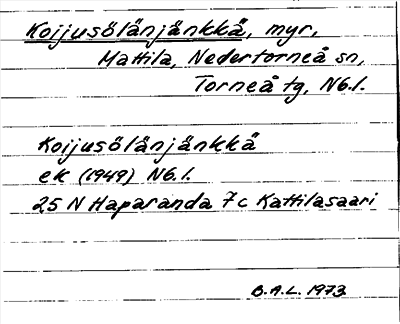 Koijusölänjänkkä, myr,
Mattila, Nedertorneå sn,
Torneå tg, Nb.l.
Koijusölänjänkkä
ek (1949) Nb.l.
25 N Haparanda 7c Kattilasaari
B.A.L. 1973